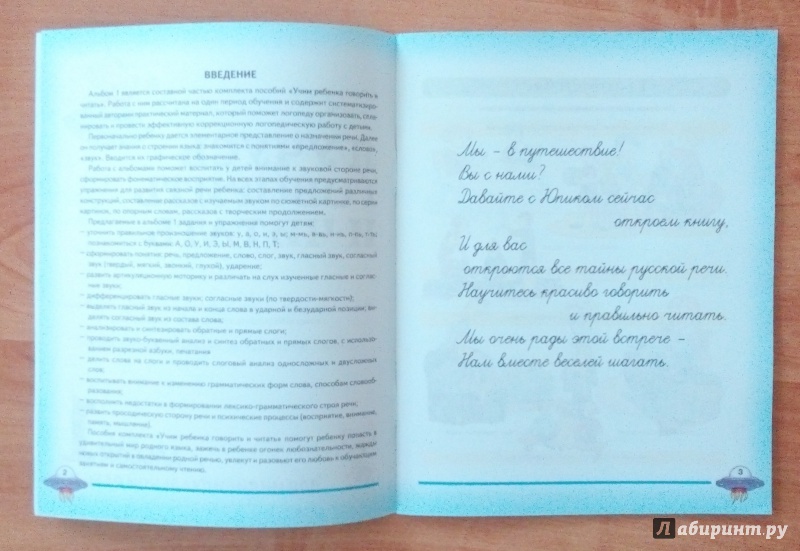 ВВЕДЕНИЕ
Альбом 1 является составной частью комплекта пособий «Учим ребенка говорить и
читать». Работа с ним рассчитана на один период обучения и содержит систематизиро-
ванный авторами практический материал, который поможет логопеду организовать, спла-
нировать и провести эффективную коррекционную логопедическую работу с детьми.
Первоначально ребенку дается элементарное представление о назначении речи. Далее
он получает знания о строении языка: знакомится с понятиями «предложение», «слово»,
«звук». Вводится их графическое обозначение.
Работа с альбомами поможет воспитать у детей внимание к звуковой стороне речи,
сформировать фонематическое восприятие. На всех этапах обучения предусматриваются
упражнения для развития связной речи ребенка: составление предложений различных
конструкций, составление рассказов с изучаемым звуком по сюжетной картинке, по серии
картинок, по опорным словам, рассказов с творческим продолжением.
Предлагаемые в альбоме 1 задания и упражнения помогут детям:
– уточнить правильное произношение звуков: у, а, о, и, э, ы; м-мь, в-вь, н-нь, п-пь, т-ть;
познакомиться с буквами: А, О, У, И, Э, Ы, М, В, Н, П, Т;
– сформировать понятия: речь, предложение, слово, слог, звук, гласный звук, согласный
звук (твердый, мягкий, звонкий, глухой), ударение;
– развить артикуляционную моторику и различать на слух изученные гласные и соглас-
ные звуки;
– дифференцировать гласные звуки; согласные звуки (по твердости-мягкости);
– выделять гласный звук из начала и конца слова в ударной и безударной позиции; вы-
делять согласный звук из состава слова;
– анализировать и синтезировать обратные и прямые слоги;
– проводить звуко-буквенный анализ и синтез обратных и прямых слогов, с использо-
ванием разрезной азбуки, печатания
– делить слова на слоги и проводить слоговый анализ односложных и двухсложных
слов;
– воспитывать внимание к изменению грамматических форм слова, способам словооб-
разования;
– восполнить недостатки в формировании лексико-грамматического строя речи;
– развить просодическую сторону речи и психические процессы (восприятие, внимание,
память, мышление).
Пособия комплекта «Учим ребенка говорить и читать» помогут ребенку попасть в
удивительный мир родного языка, зажечь в ребенке огонек любознательности, жажды
новых открытий в овладении родной речью, увлекут и разовьют его любовь к обучающим
занятиям и самостоятельному чтению.
2
Мы – в путешествие!
Вы с нами?
Давайте с Юпиком сейчас
откроем книгу.
И для вас
откроются все тайны русской речи.
Научитесь красиво говорить
и правильно читать.
Мы очень рады этой встрече –
Нам вместе веселей шагать.
3
Лабиринт.ру